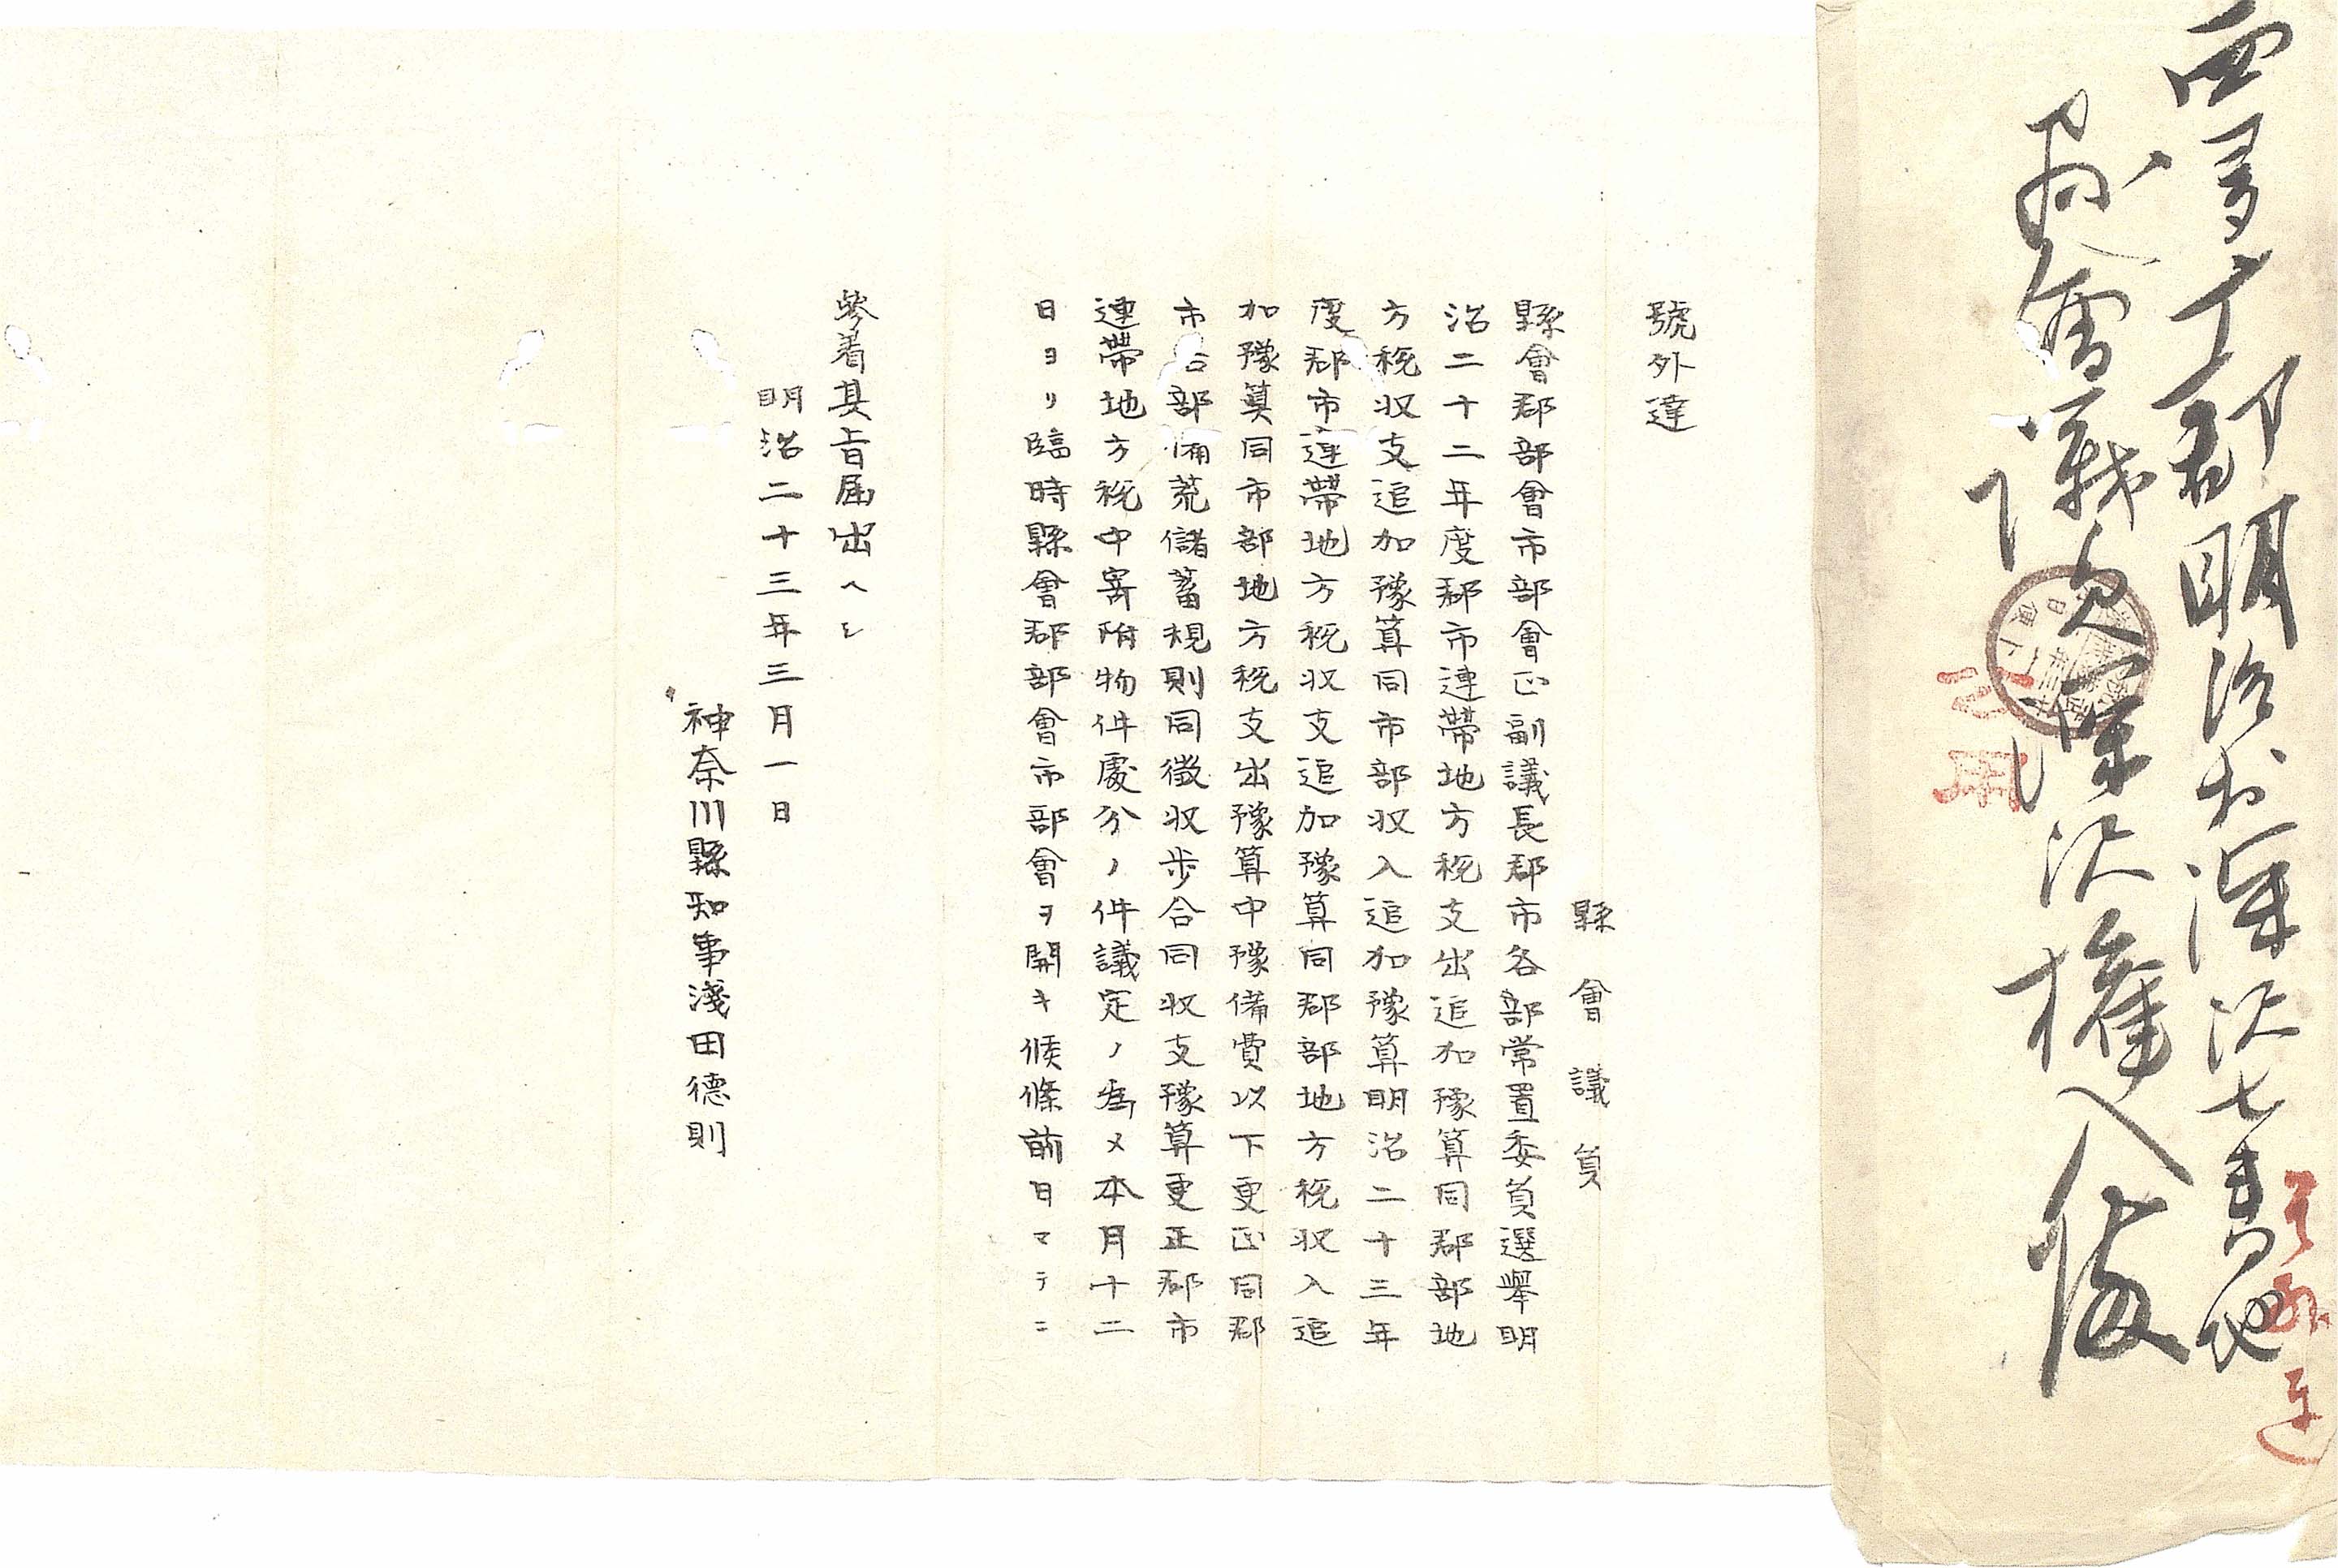 西多广郡明治村深沢七番地
縣會議員深沢権八殿
公用
號外達
縣會議員
縣會郡部會市部會正副議長郡市各部常置委員選舉明
治二十二年度郡市連帶地方税支出追加豫算同郡部地
方税収支追加豫算同市部収入追加豫算明治二十三年
度郡市連帶地方税収支追加豫算同郡部地方税収入追
加豫算同市部地方税支出豫算中豫備費以下更正同郡
市各部備荒儲蓄規則同徴収歩合同収支豫算更正郡市
連帶地方税中寄附物件處分ノ件議定ノ為メ本月十二
日ヨリ臨時縣會郡部會市部會ヲ開キ候條前日マテニ
參着其旨届出ヘシ
明治二十三年三月一日
神奈川縣知事淺田德則